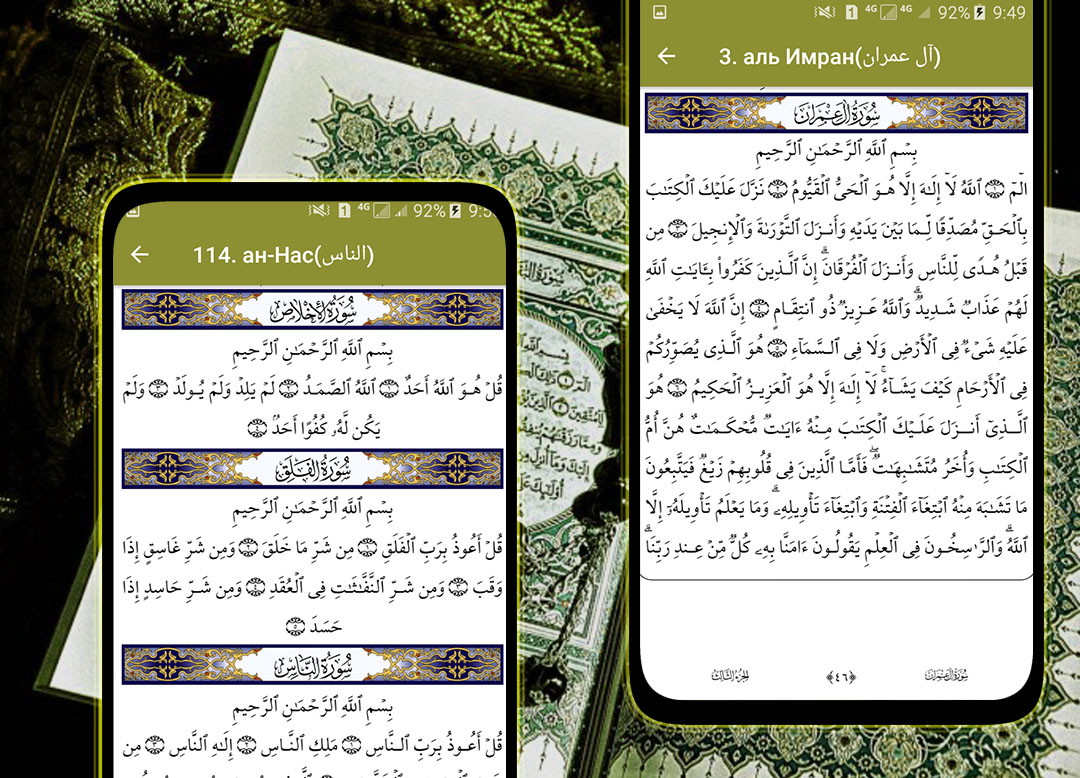 1 4G 92% 9:5
114. ан-Нас(الناس)
سُورَةُ الإِخْلَاصِ
بِسۡمِ ٱللَّهِ ٱلرَّحۡمَٰنِ ٱلرَّحِيمِ
قُلۡ هُوَ ٱللَّهُ أَحَدٌ ١ ٱللَّهُ ٱلصَّمَدُ ٢ لَمۡ يَلِدۡ وَلَمۡ يُولَدۡ ٣ وَلَمۡ
يَكُن لَّهُۥ كُفُوًا أَحَدُۢ ٤
سُورَةُ الفَلَقِ
بِسۡمِ ٱللَّهِ ٱلرَّحۡمَٰنِ ٱلرَّحِيمِ
قُلۡ أَعُوذُ بِرَبِّ ٱلۡفَلَقِ ١ مِن شَرِّ مَا خَلَقَ ٢ وَمِن شَرِّ غَاسِقٍ إِذَا
وَقَبَ ٣ وَمِن شَرِّ ٱلنَّفَّٰثَٰتِ فِي ٱلۡعُقَدِ ٤ وَمِن شَرِّ حَاسِدٍ إِذَا
حَسَدَ ٥
سُورَةُ النَّاسِ
بِسۡمِ ٱللَّهِ ٱلرَّحۡمَٰنِ ٱلرَّحِيمِ
قُلۡ أَعُوذُ بِرَبِّ ٱلنَّاسِ ١ مَلِكِ ٱلنَّاسِ ٢ إِلَٰهِ ٱلنَّاسِ ٣ مِن
1 4G 4G 92% 9:49
3. аль Имран(آل عمران)
سُورَةُ آلِ عِمْرَانَ
بِسۡمِ ٱللَّهِ ٱلرَّحۡمَٰنِ ٱلرَّحِيمِ
الٓمٓ ١ ٱللَّهُ لَآ إِلَٰهَ إِلَّا هُوَ ٱلۡحَيُّ ٱلۡقَيُّومُ ٢ نَزَّلَ عَلَيۡكَ ٱلۡكِتَٰبَ
بِٱلۡحَقِّ مُصَدِّقًا لِّمَا بَيۡنَ يَدَيۡهِ وَأَنزَلَ ٱلتَّوۡرَىٰةَ وَٱلۡإِنجِيلَ ٣ مِن
قَبۡلُ هُدًى لِّلنَّاسِ وَأَنزَلَ ٱلۡفُرۡقَانَۗ إِنَّ ٱلَّذِينَ كَفَرُواْ بِـَٔايَٰتِ ٱللَّهِ
لَهُمۡ عَذَابٌ شَدِيدٌۗ وَٱللَّهُ عَزِيزٌ ذُو ٱنتِقَامٍ ٤ إِنَّ ٱللَّهَ لَا يَخۡفَىٰ
عَلَيۡهِ شَيۡءٌ فِي ٱلۡأَرۡضِ وَلَا فِي ٱلسَّمَآءِ ٥ هُوَ ٱلَّذِي يُصَوِّرُكُمۡ
فِي ٱلۡأَرۡحَامِ كَيۡفَ يَشَآءُۚ لَآ إِلَٰهَ إِلَّا هُوَ ٱلۡعَزِيزُ ٱلۡحَكِيمُ ٦ هُوَ
ٱلَّذِيٓ أَنزَلَ عَلَيۡكَ ٱلۡكِتَٰبَ مِنۡهُ ءَايَٰتٌ مُّحۡكَمَٰتٌ هُنَّ أُمُّ
ٱلۡكِتَٰبِ وَأُخَرُ مُتَشَٰبِهَٰتٌۖ فَأَمَّا ٱلَّذِينَ فِي قُلُوبِهِمۡ زَيۡغٌ فَيَتَّبِعُونَ
مَا تَشَٰبَهَ مِنۡهُ ٱبۡتِغَآءَ ٱلۡفِتۡنَةِ وَٱبۡتِغَآءَ تَأۡوِيلِهِۦۗ وَمَا يَعۡلَمُ تَأۡوِيلَهُۥٓ إِلَّا
ٱللَّهُۗ وَٱلرَّٰسِخُونَ فِي ٱلۡعِلۡمِ يَقُولُونَ ءَامَنَّا بِهِۦ كُلٌّ مِّنۡ عِندِ رَبِّنَاۗ
سُورَةُ آلِ عِمْرَانَ ﴿٤٦﴾ الجُزْءُ الثَّالِث